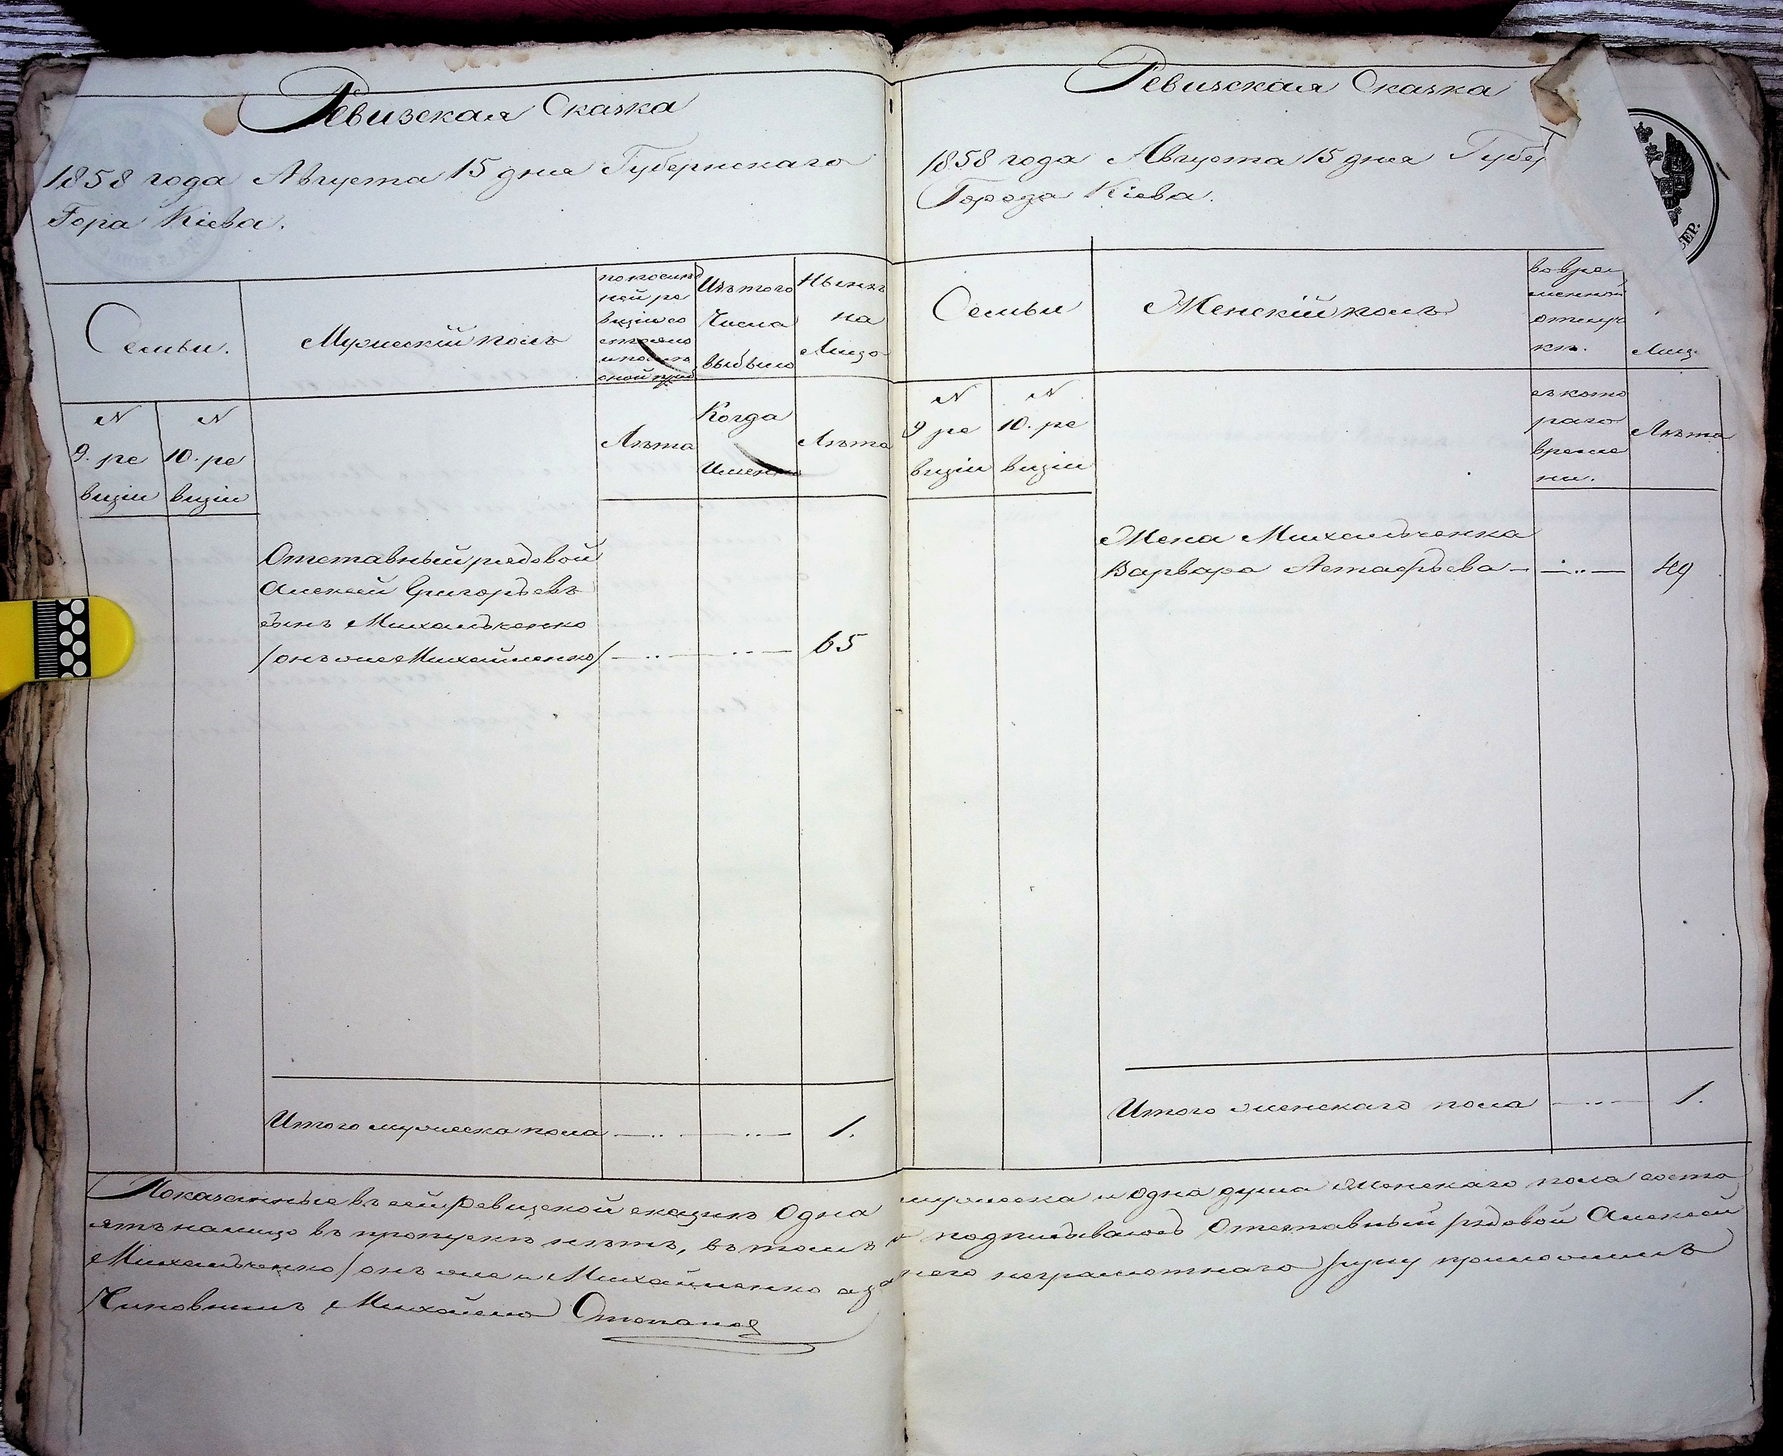 Ревизская Сказка
1858 года Августа 15 дня Губернскаго
Гора Кіева.
Семьи.
Мужескій полъ
по послѣд
ней ре
визіи со
стояло
и послѣ
оной приб
Изъ того
Числа
выбыло
Нынѣ
на
Лицо
N
9. ре
визіи
N
10. ре
визіи
Лѣта
Когда
Именно
Лѣта
Отставный рядовой
Алексей Григорьевъ
сынъ Михальченко
/онъ же Михайленко/
65
Итого мужеска пола
1.
Ревизская Сказка
1858 года Августа 15 дня Губер
Города Кіева.
Семьи
Женскій полъ
во вре
менной
отлуч
кѣ.
Лиц
N
9 ре
визіи
N
10. ре
визіи
съ кото
раго
време
ни.
Лѣта
Жена Михальченка
Варвара Астафьева
49
Итого женскаго пола
1.
Показанные въ сей ревизской сказкѣ Одна мужеска и одна душа женскаго пола состо
ятъ налицо въ пропускѣ нѣтъ, въ томъ и подписываюсь Отставный рядовой Алексей
Михальченко /онъ же и Михайленко а за него неграмотнаго руку приложилъ
Чиновникъ Михайло